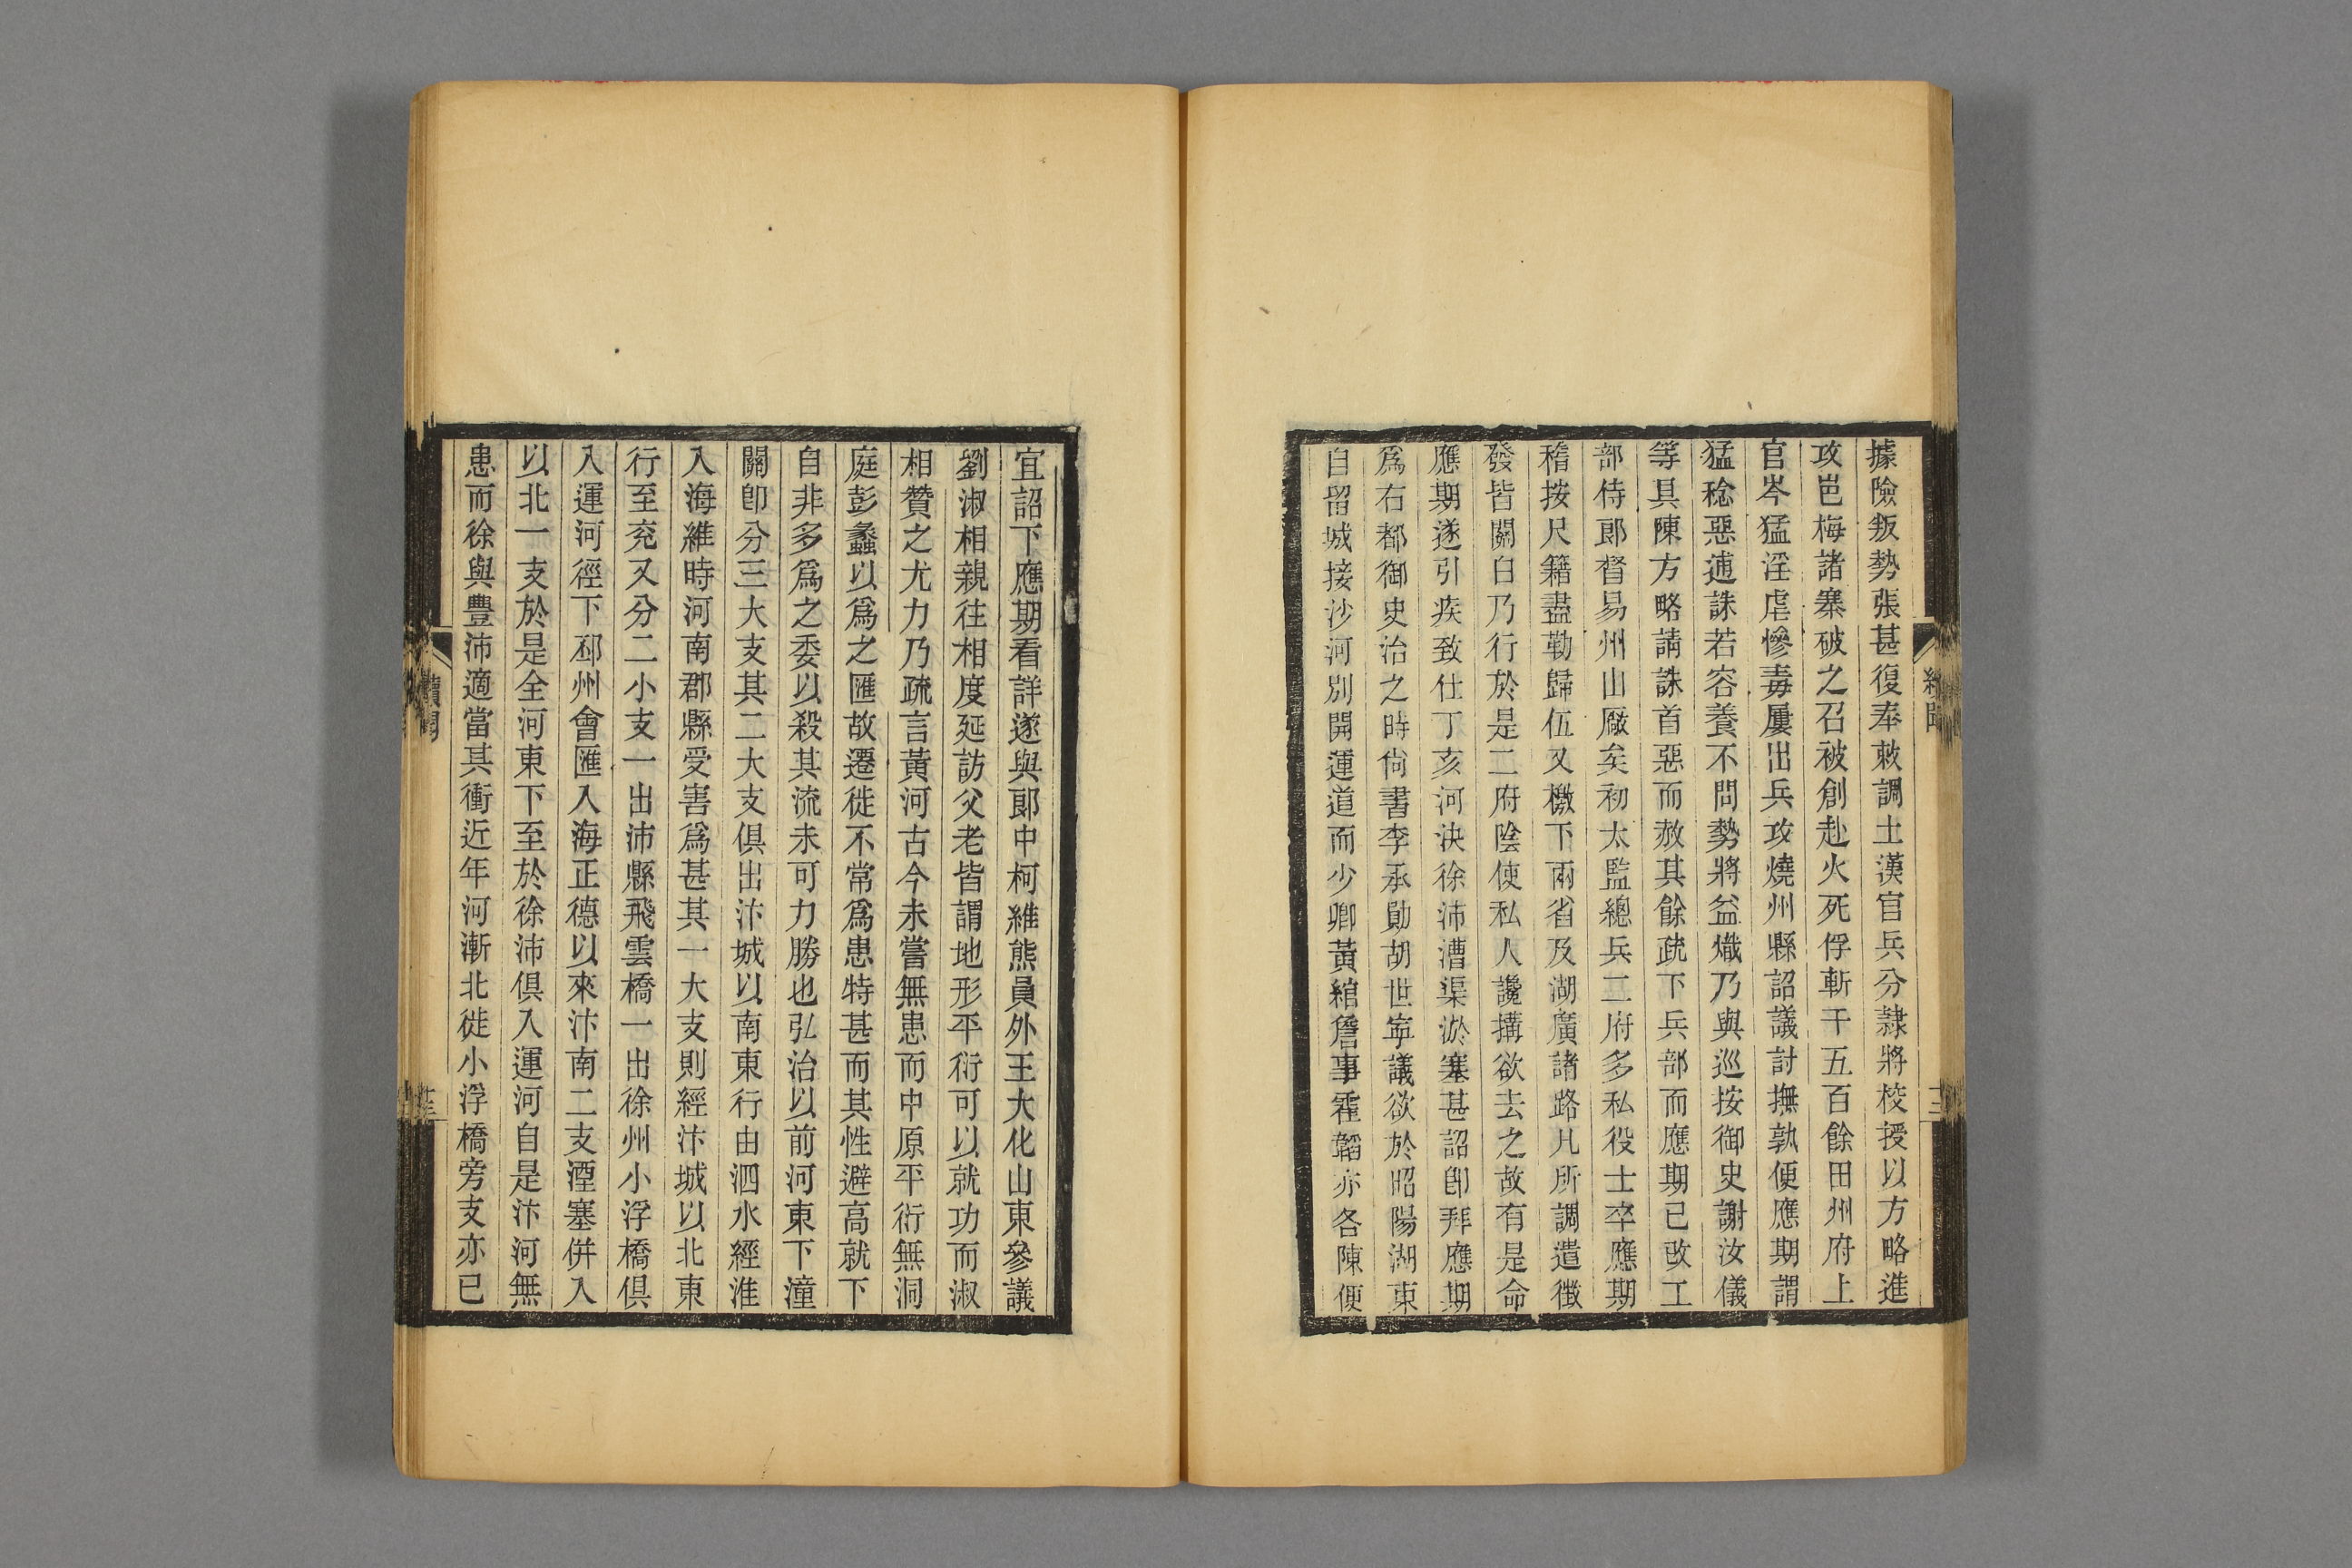 據險叛勢張甚復奉敕調土漢官兵分隷將校授以方略進
攻岜梅諸寨破之召被創赴火死俘斬千五百餘田州府上
官岑猛淫虐慘毒屢出兵攻燒州縣詔議討撫孰便應期謂
猛稔惡逋誅若容養不問勢將益熾乃與巡按御史謝汝儀
等具陳方略請誅首惡而赦其餘疏下兵部而應期已改工
部侍郎督易州山厰矣初太監總兵二府多私役士卒應期
稽按尺籍盡勒歸伍又檄下兩省及湖廣諸路凡所調遣徵
發皆關白乃行於是二府陰使私人讒搆欲去之故有是命
應期遂引疾致仕丁亥河決徐沛漕渠淤塞甚詔卽拜應期
爲右都御史治之時尙書李承勛胡世寧議欲於昭陽湖東
自留城接沙河別開運道而少卿黃綰詹事霍韜亦各陳便
宜詔下應期看詳遂與郎中柯維熊員外王大化山東參議
劉淑相親往相度延訪父老皆謂地形平衍可以就功而淑
相贊之尤力乃疏言黃河古今未嘗無患而中原平衍無洞
庭彭蠡以爲之匯故遷徙不常爲患特甚而其性避高就下
自非多爲之委以殺其流未可力勝也弘治以前河東下潼
關卽分三大支其二大支俱出汴城以南東行由泗水經淮
入海維時河南郡縣受害爲甚其一大支則經汴城以北東
行至兗又分二小支一出沛縣飛雲橋一出徐州小浮橋俱
入運河徑下邳州會匯入海正德以來汴南二支湮塞併入
以北一支於是全河東下至於徐沛俱入運河自是汴河無
患而徐與豐沛適當其衝近年河漸北徙小浮橋旁支亦已